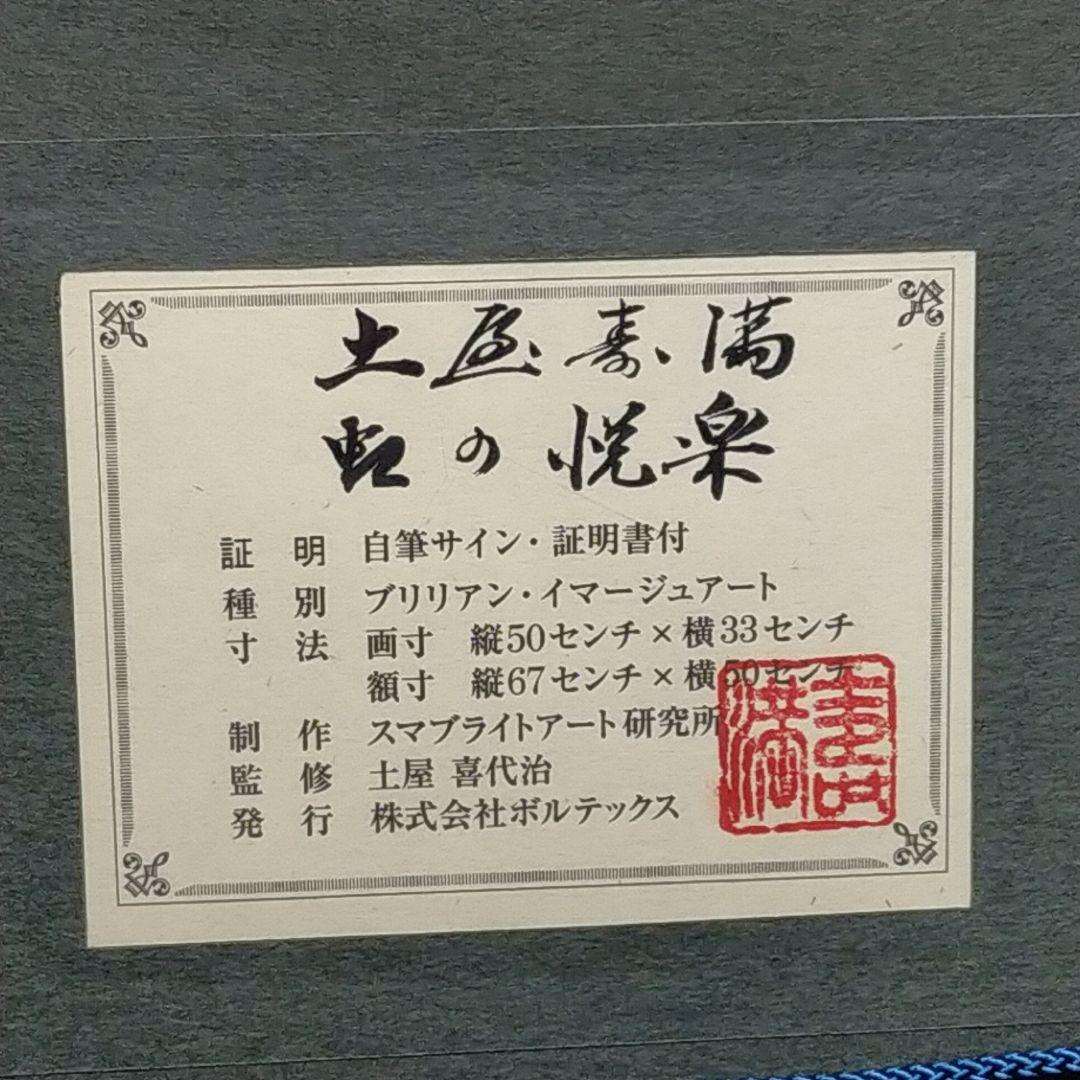 土屋寿満
虹の悦楽
証 明 自筆サイン・証明書付
種 別 ブリリアン・イマージュアート
寸 法 画寸 縦50センチ×横33センチ
額寸 縦67センチ×横50センチ
制 作 スマブライトアート研究所
監 修 土屋 喜代治
発 行 株式会社ボルテックス
寿満